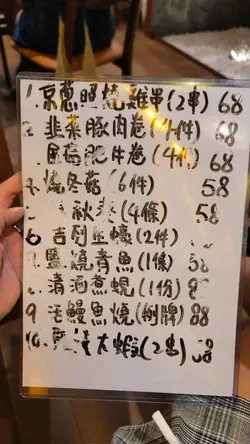 1.京蔥照燒雞串(2串) 68
2.韭菜豚肉卷(4件) 68
肥牛卷(4件) 68
4.燒冬菇(6件) 58
秋葵(4條) 58
6 吉列生蠔(2件)
鹽燒青魚(1條) 58
清酒煮蜆(1份) 8
9 活鰻魚燒(例牌) 88
10.燒大蝦(2串) 68